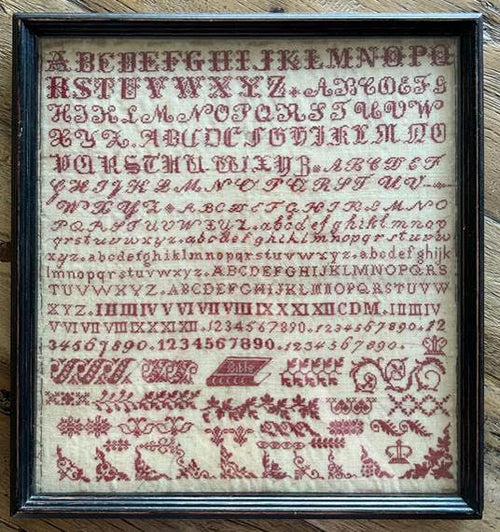 ABCDEFGHIJKLMNOPQ
RSTUVWXYZ.ABCDEFG
HIKLMNOPQRSTUVW
XYZ.ABCDEFGHIKLMNO
PQRSTHU-WXYZ.ABCDEF
GHIJKLMNOPQRSTUV
WXYZ.ABCDEFGHIKLMNO
PQRSTUVWXYZ.abcdefghiklmnop
qrstuvwxyz.abcdefghiklmnopqrstuvw
xyz.abcdefghiklmnopqrstuvwxyz.abcdefghijk
lmnopqrstuvwxyz.ABCDEFGHIJKLMNOPQRS
TUVWXYZ.ABCDEFGHIJKLMNOPQRSTUVW
XYZ.IIIIIIIVVVIVIIVIIIIXXXIXIICDM.IIIIIIIV
VVIVIIVIIIIXXXIXII.1234567890.1234567890.12
34567890.1234567890.1234567890.
Bible